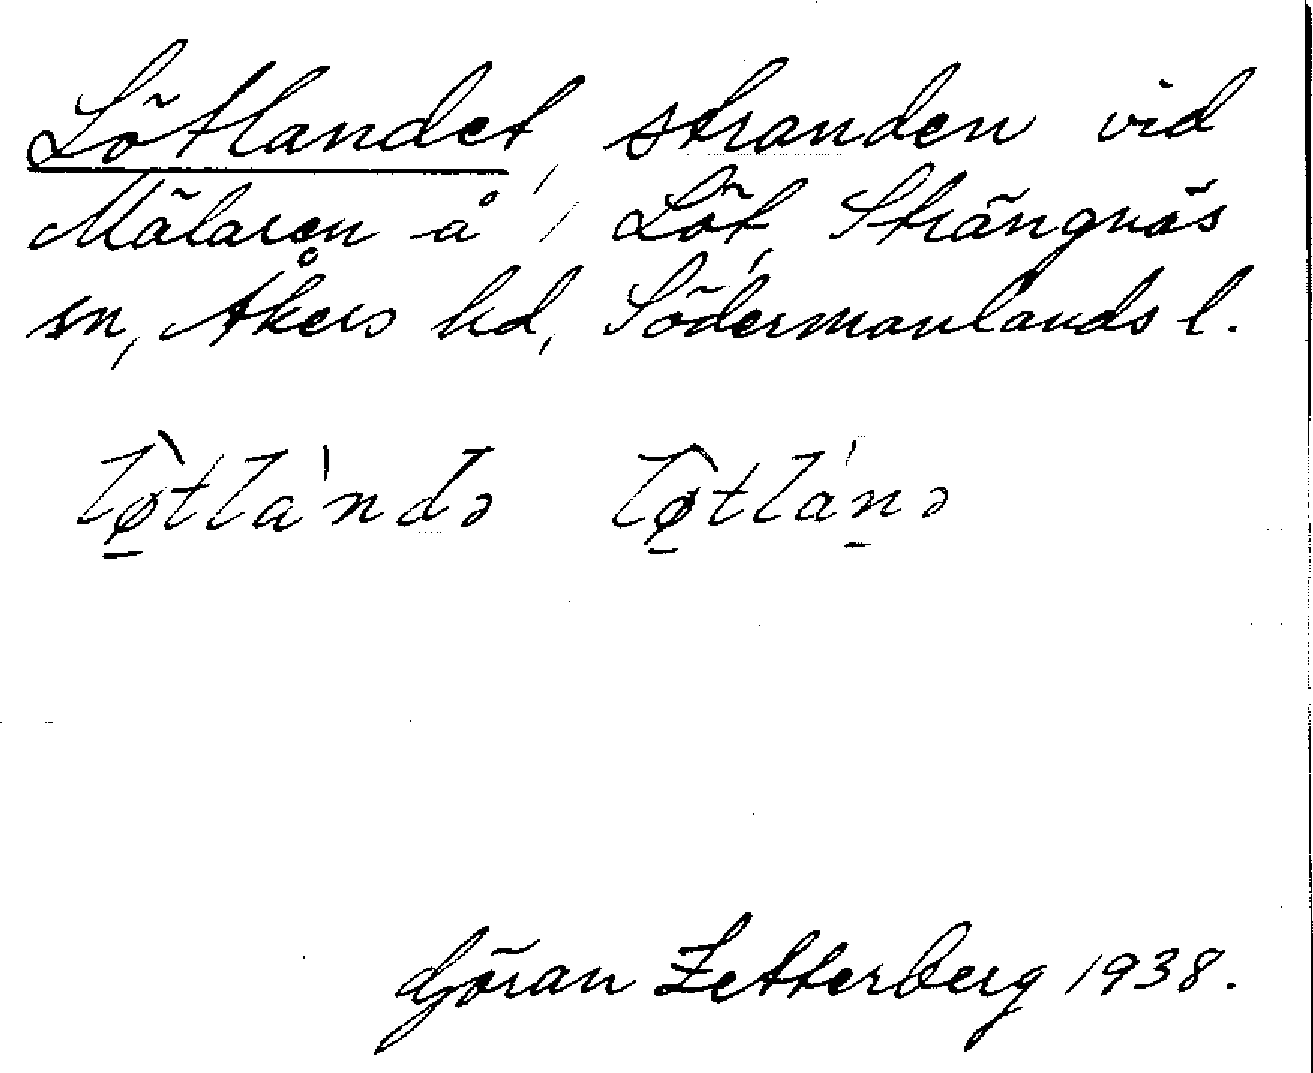 Lötlandet, stranden vid
Mälaren å Löt, Strängnäs
sn, Åkers hd, Södermanlands l.
lø̱̀tlándə lø̱̀tlán̠ə
Göran Zetterberg 1938.